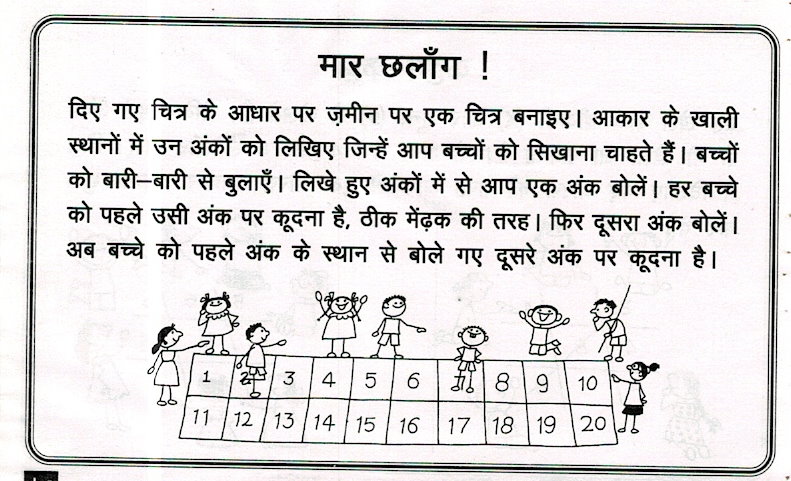 मार छलाँग !
दिए गए चित्र के आधार पर ज़मीन पर एक चित्र बनाइए। आकार के खाली
स्थानों में उन अंकों को लिखिए जिन्हें आप बच्चों को सिखाना चाहते हैं। बच्चों
को बारी–बारी से बुलाएँ। लिखे हुए अंकों में से आप एक अंक बोलें। हर बच्चे
को पहले उसी अंक पर कूदना है, ठीक मेंढ़क की तरह। फिर दूसरा अंक बोलें।
अब बच्चे को पहले अंक के स्थान से बोले गए दूसरे अंक पर कूदना है।
1 2 3 4 5 6 8 9 10
11 12 13 14 15 16 17 18 19 20